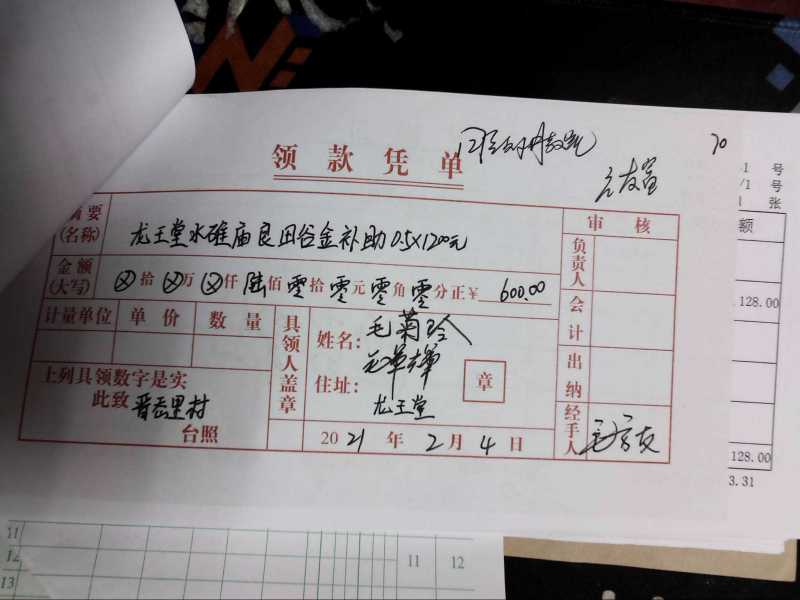 领款凭单
70
摘要
(名称)
龙王堂水碓庙良田谷金补助0.5×1200元
审核
金额
(大写)
⊗拾⊗万⊗仟陆佰零拾零元零角零分正¥ 600.00
负责人
会计
出纳
经手人
计量单位 单价 数量
具领人盖章
姓名: 毛菊玲
住址: 龙王堂
章
上列具领数字是实
此致
台照
2021年2月4日
1 号
/1 号
张
额
128.00
128.00
3.31
11
12
13
11 12